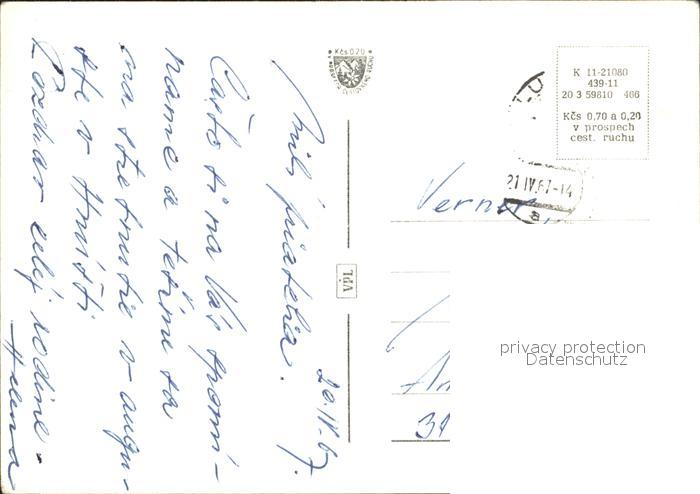 20.IV.67.
Milí priatelia.
Často si na Vás spomí-
name a tešíme sa
na stretnutie v augu-
ste v
Pozdrav celej rodine.
Helena
Kčs 0,20
VPL
K 11-21080
439-11
20 3 59810 466
Kčs 0,70 a 0,20
v prospech
cest. ruchu
21.IV.67-14
a
Verner
privacy protection
Datenschutz
An